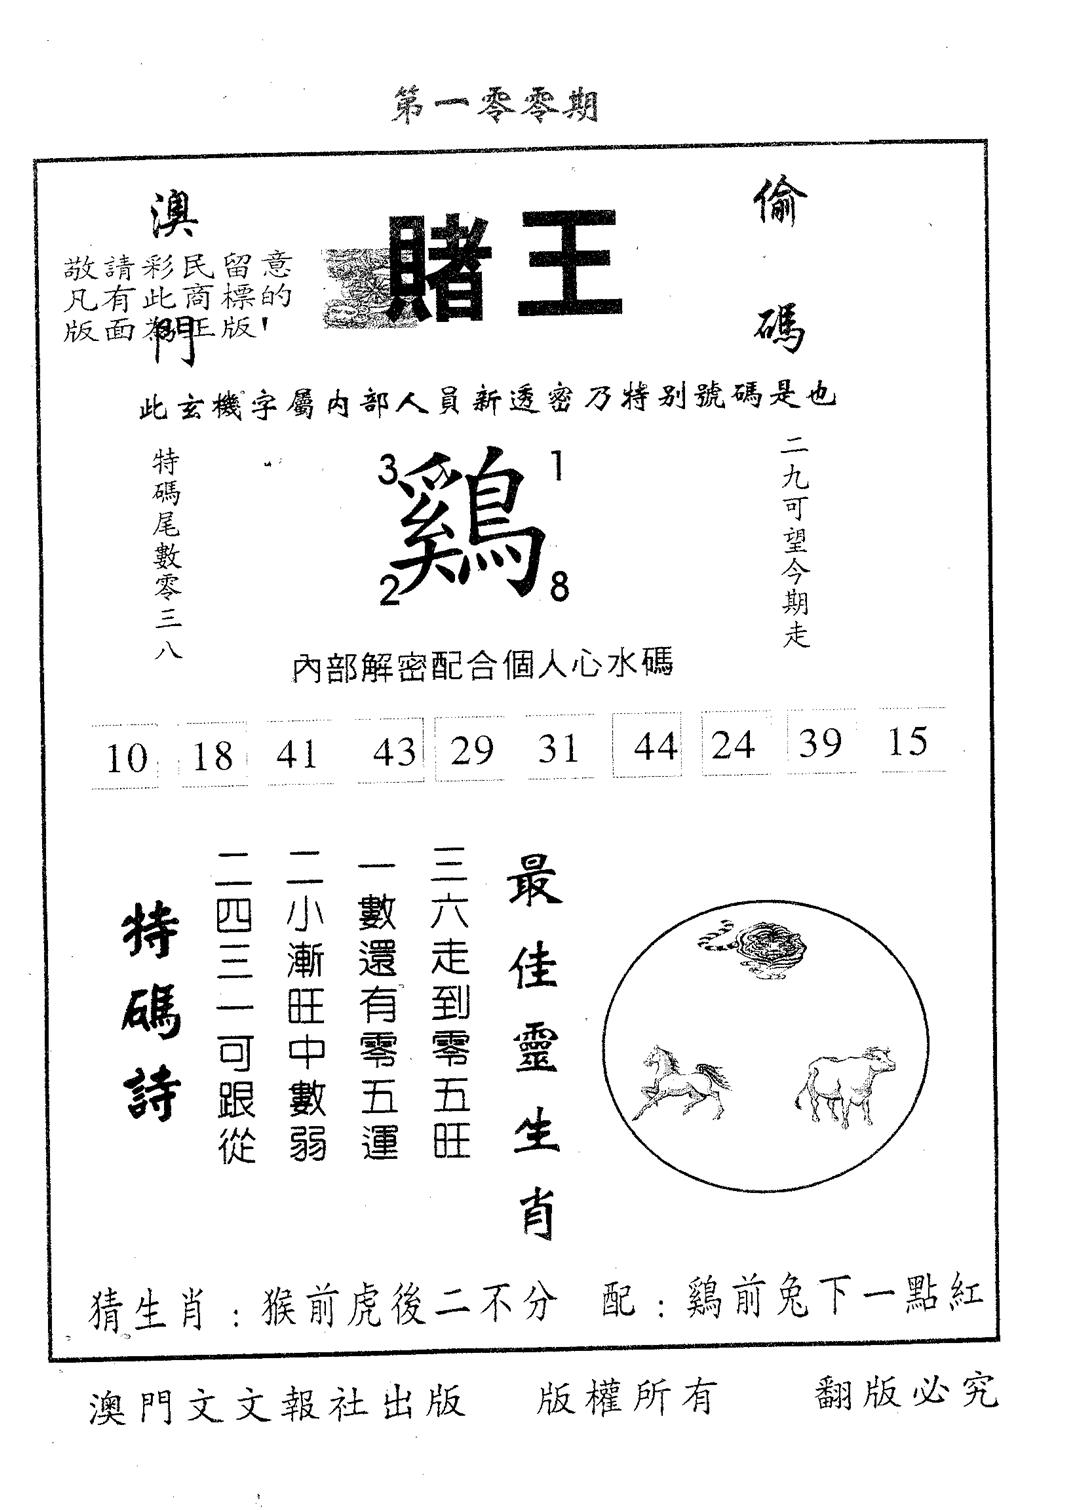 第一零零期
澳門
賭王
偷碼
敬請彩民留意
凡有此商標的
版面為正版!
此玄機字屬内部人員新透密乃特别號碼是也
特碼尾數零三八
3
1
鷄
2
8
二九可望今期走
內部解密配合個人心水碼
10 18 41 43 29 31 44 24 39 15
最佳靈生肖
三六走到零五旺
一數還有零五運
二小漸旺中數弱
二四三一可跟從
特碼詩
猜生肖:猴前虎後二不分 配:鷄前兔下一點紅
澳門文文報社出版 版權所有 翻版必究